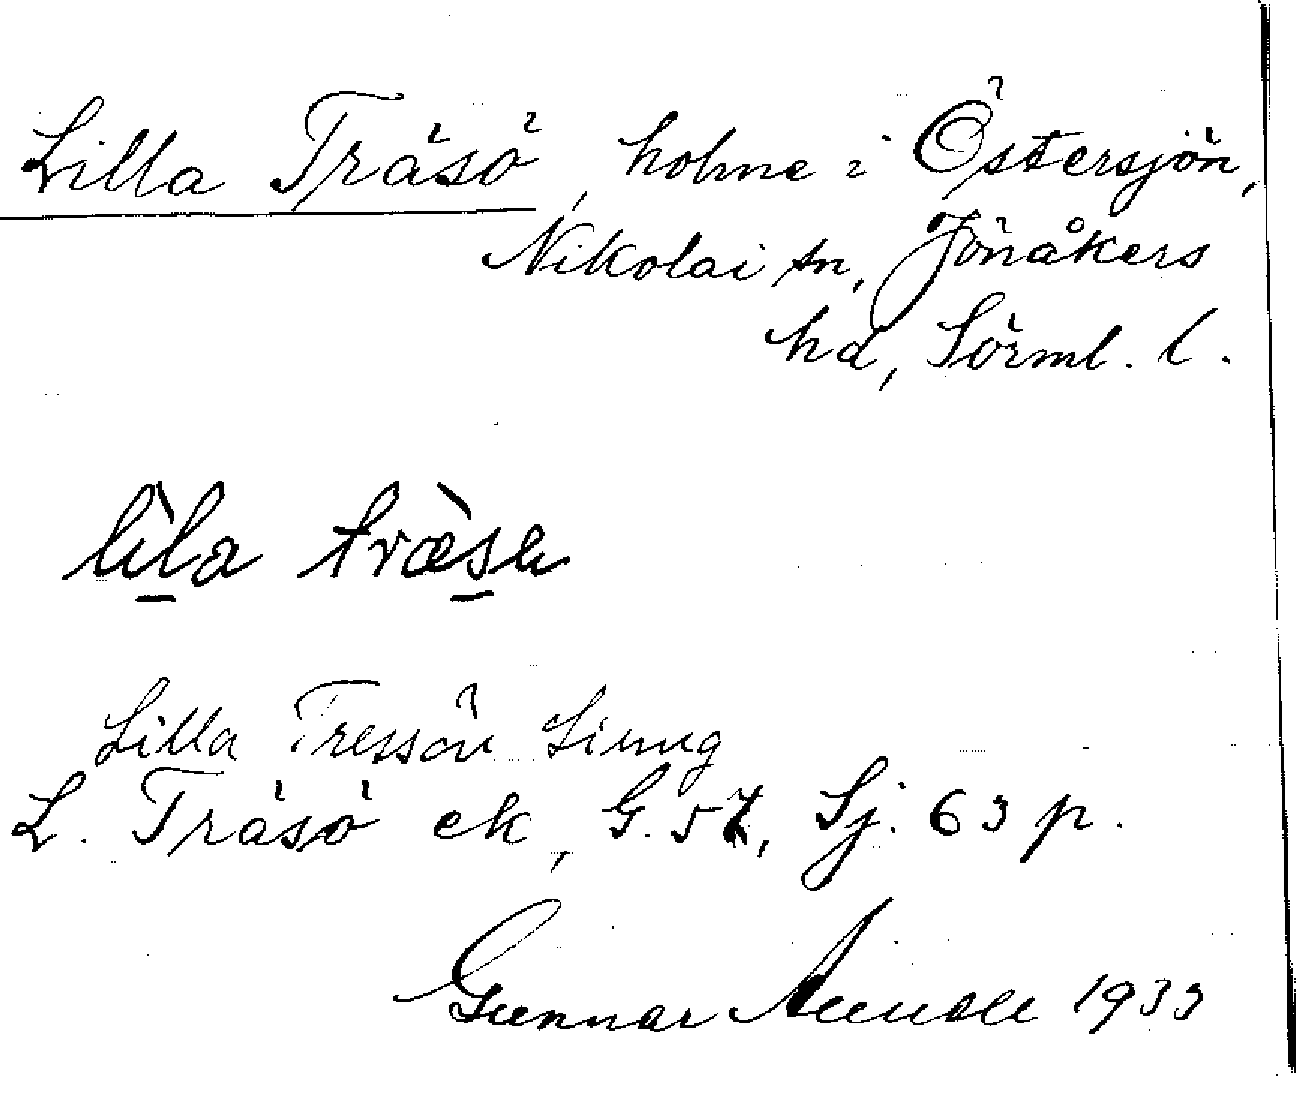 Lilla Träsö, holme i Östersjön,
Nikolai sn, Jönåkers
hd, Sörml. l.
lìla træ̀sa
Lilla Tressön
L. Träsö ek, G. 57, Sj. 63 p.
Gunnar 1933